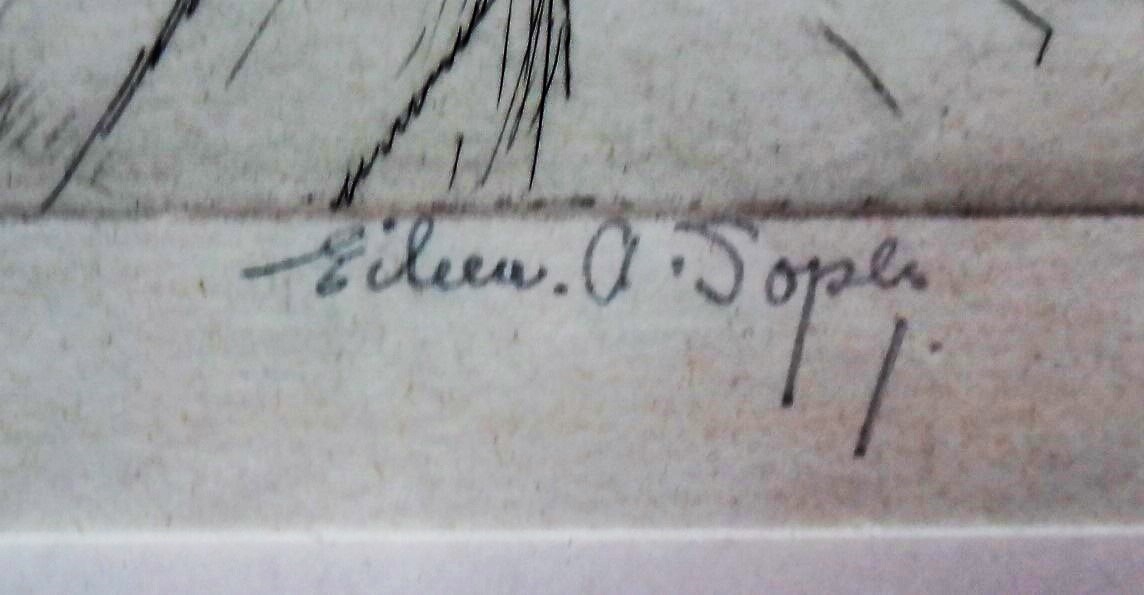 Eileen. A. Soper.